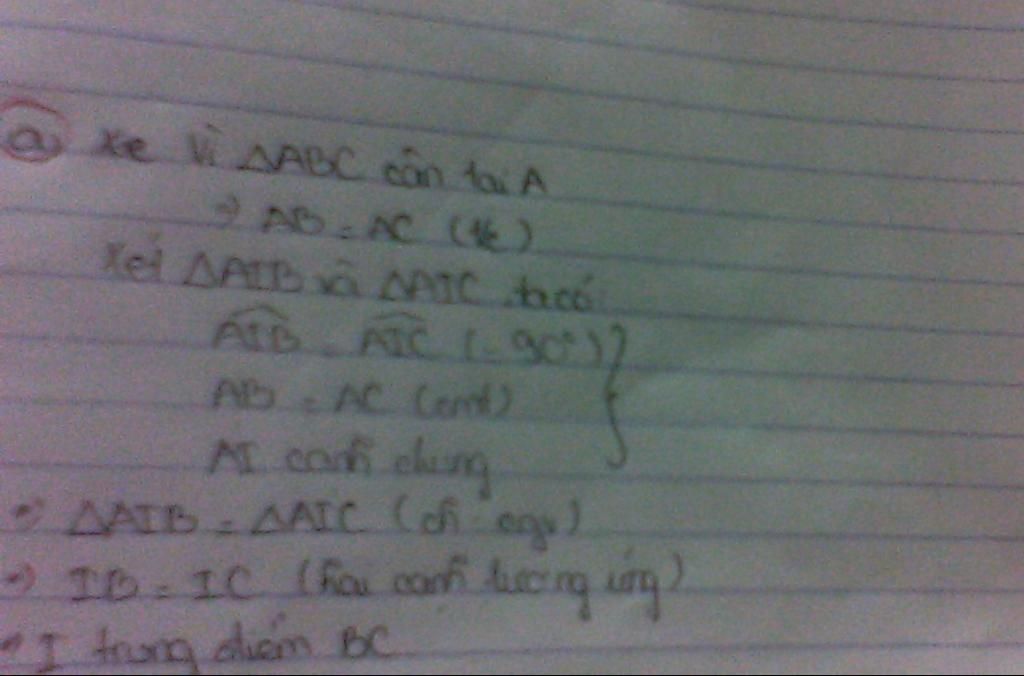 a) Xe Vì ΔABC cân tại A
=> AB = AC (tc)
Xét ΔAIB và ΔAIC ta có:
AIB = AIC (= 90°)
AB = AC (cmt)
AI cạnh chung
=> ΔAIB = ΔAIC (ch - cgv)
=> IB = IC (hai cạnh tương ứng)
=> I trung điểm BC